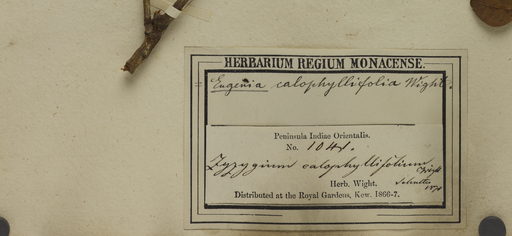 HERBARIUM REGIUM MONACENSE.
Eugenia calophyllifolia Wight.
Peninsula Indiae Orientalis.
No. 1041.
Zyzygium calophyllifolium
Wight
Herb. Wight.
Distributed at the Royal Gardens, Kew. 1866-7.